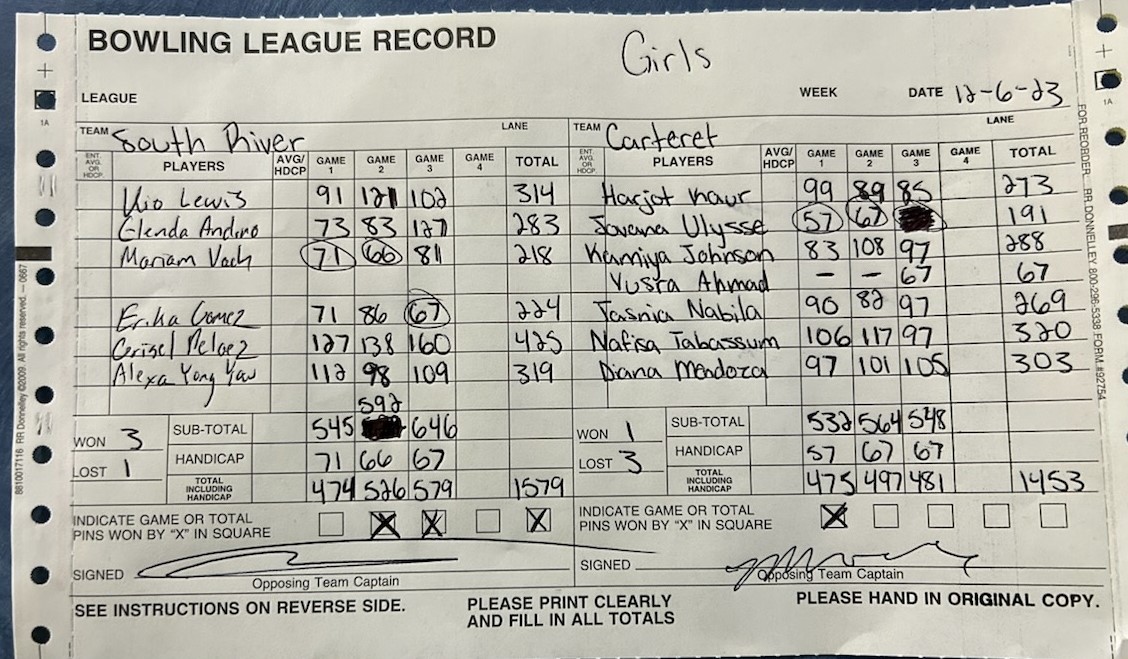 BOWLING LEAGUE RECORD
Girls
LEAGUE WEEK DATE 12-6-23
TEAM South River LANE
ENT. AVG. OR HDCP. PLAYERS AVG/HDCP GAME 1 GAME 2 GAME 3 GAME 4 TOTAL
Kio Lewis 91 121 102 314
Glenda Andino 73 83 127 283
Mariam Vach 71 66 81 218
Erika Gomez 71 86 67 224
Grisel Pelaez 127 138 160 425
Alexa Yong Yau 112 98 109 319
592
SUB-TOTAL 545 646
WON 3
HANDICAP 71 66 67
LOST 1
TOTAL INCLUDING HANDICAP 474 526 579 1579
INDICATE GAME OR TOTAL
PINS WON BY "X" IN SQUARE X X X
SIGNED
Opposing Team Captain
TEAM Carteret LANE
ENT. AVG. OR HDCP. PLAYERS AVG/HDCP GAME 1 GAME 2 GAME 3 GAME 4 TOTAL
Harjot Kaur 99 89 85 273
Jovana Ulysse 57 67 191
Kamiya Johnson 83 108 97 288
Yusra Ahmad - - 67 67
Tasnia Nabila 90 82 97 269
Nafisa Tabassum 106 117 97 320
Diana Mendoza 97 101 105 303
SUB-TOTAL 532 564 548
WON 1
HANDICAP 57 67 67
LOST 3
TOTAL INCLUDING HANDICAP 475 497 481 1453
INDICATE GAME OR TOTAL
PINS WON BY "X" IN SQUARE X
SIGNED
Opposing Team Captain
SEE INSTRUCTIONS ON REVERSE SIDE.
PLEASE PRINT CLEARLY
AND FILL IN ALL TOTALS
PLEASE HAND IN ORIGINAL COPY.
8810017116 RR Donnelley ©2009. All rights reserved. — 0667
FOR REORDER: RR DONNELLEY 800-296-5338 FORM #92754
1A
1A